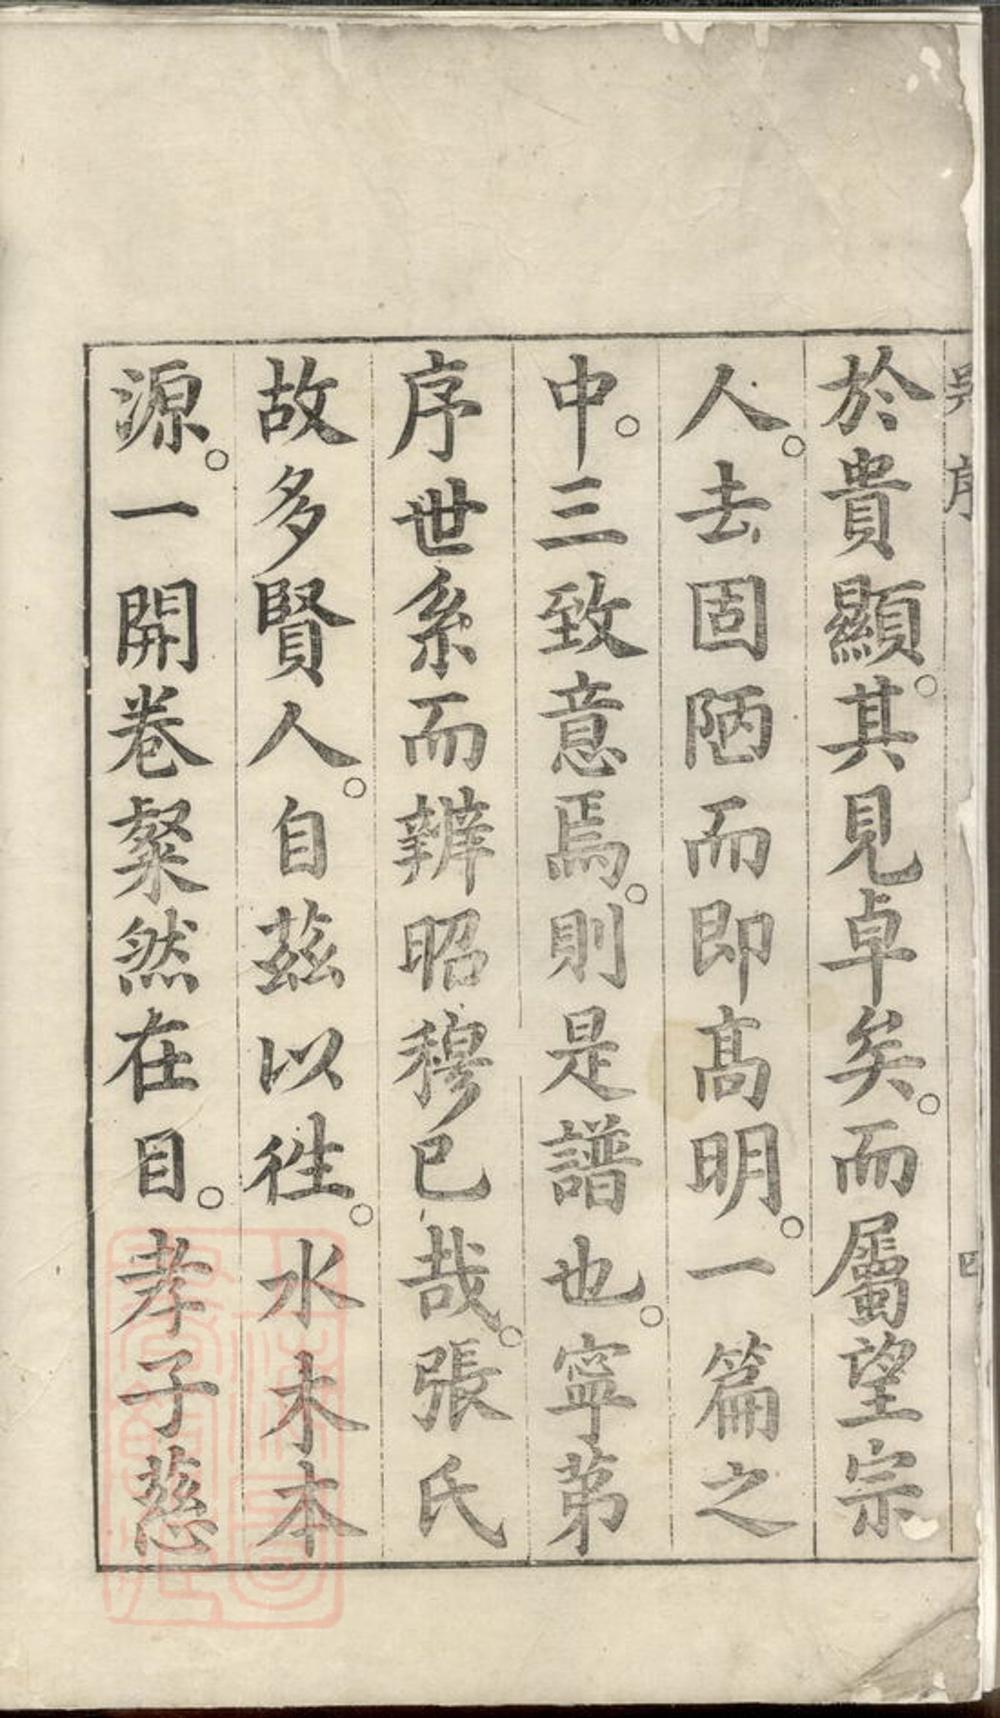 吳序
於貴顯。其見卓矣。而屬望宗
人。去固陋而即高明。一篇之
中。三致意焉。則是譜也。寧第
序世系而辨昭穆已哉。張氏
故多賢人。自茲以徃。水木本
源。一開卷粲然在目。孝子慈
四